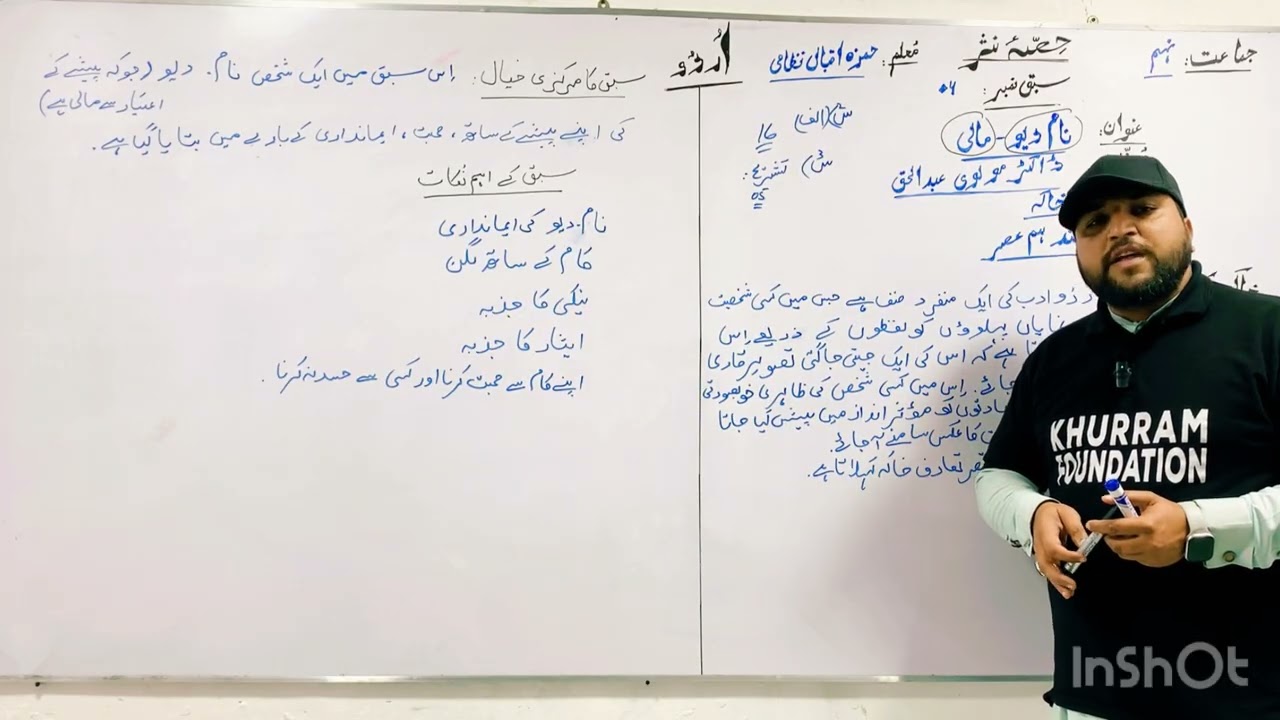 جماعت: نہم
حِصّۂ نثر
مُعلم: حمزہ اقبال نظامی
سبق نمبر: 06
عنوان: نام دیو - مالی
ڈاکٹر مولوی عبدالحق
خاکہ
ہم عصر
س (الف)
16
س) تشریح:
05
اُردُو
ادب کی ایک منفرد صنف ہے جس میں کسی شخصیت
پہلوؤں کو لفظوں کے ذریعے اِس
ہے کہ اس کی ایک جیتی جاگتی تصویر قاری
جائے. اِس میں کسی شخص کی ظاہری خوبصورتی
کو مؤثر انداز میں پیش کیا جاتا
کا عکس سامنے آ جائے.
تعارف خاکہ کہلاتا ہے.
سبق کا مرکزی خیال: اِس سبق میں ایک شخص نام. دیو (جو کہ پیشے کے
اعتبار سے مالی ہے)
کی اپنے پیشے کے ساتھ، محبت، ایمانداری کے بارے میں بتایا گیا ہے.
سبق کے اہم نُکات
نام. دیو کی ایمانداری
کام کے ساتھ لگن
نیکی کا جذبہ
ایثار کا جذبہ
اپنے کام سے محبت کرنا اور کسی سے حسد نہ کرنا.
KHURRAM
FOUNDATION
InShOt